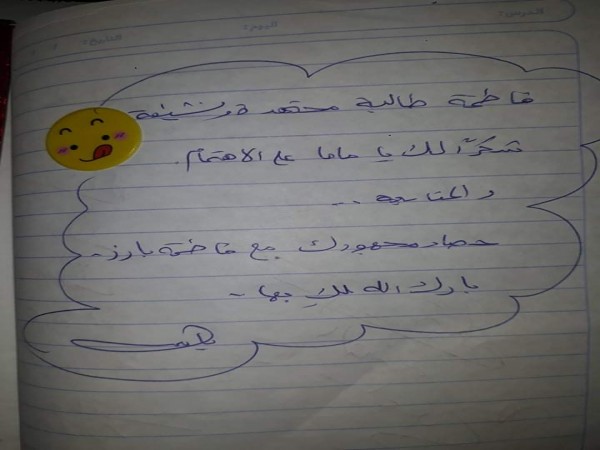 الدرس: اليوم: التاريخ: / /
فاطمة طالبة مجتهدة ونشيطة
شكرًا لك يا ماما على الاهتمام.
والمتابعة ...
حصاد مجهودك مع فاطمة بارز.
بارك الله لكِ بها.